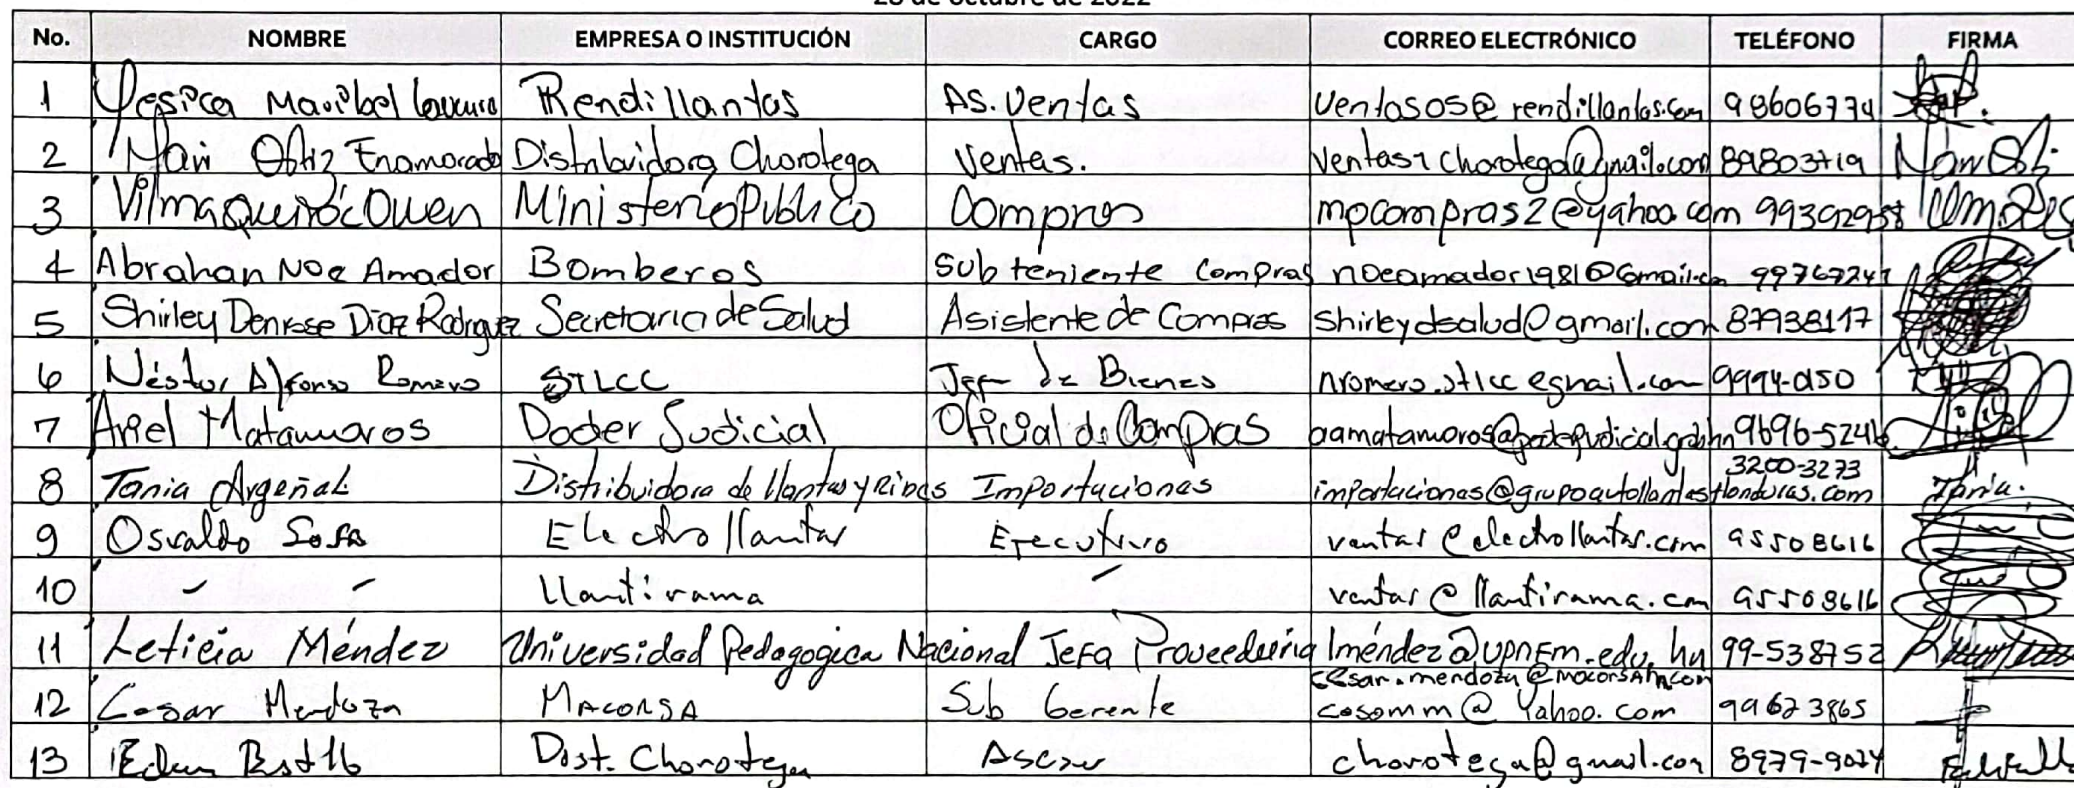 28 de octubre de 2022
No. NOMBRE EMPRESA O INSTITUCIÓN CARGO CORREO ELECTRÓNICO TELÉFONO FIRMA
1 Yesica Maribel Rendillantas As. Ventas ventas05@rendillantas.com 98606774
2 Ortiz Enamorado Distribuidora Chorotega Ventas. 89803719
3 Vilma Quiróz Owen Ministerio Publico Compras mpcompras2@yahoo.com 99392958
4 Abrahan Noe Amador Bomberos Sub teniente Compras noeamador1981@Gmail.com 99767247
5 Shirley Denisse Diaz Rodriguez Secretaria de Salud Asistente de Compras shirleydsalud@gmail.com 87938117
6 Néstor Alfonso Romero STLCC Jefe de Bienes nromero.stlcc@gmail.com
7 Ariel Matamoros Poder Judicial Oficial de Compras 9696-5246
3200-3273
8 Tania Argeñal Distribuidora de llantas y Rines Importaciones importaciones@grupoautollantashonduras.com Tania.
9 Osvaldo Sosa Electrollantas Ejecutivo ventas@electrollantas.com 95508616
10 " " Llantirama " ventas@llantirama.com 95508616
11 Leticia Méndez Universidad Pedagogica Nacional Jefa Proveeduria lméndez@upnfm.edu.hn 99-538752
cesar.mendoza@macorsahn.com
12 Cesar Mendoza MACORSA Sub Gerente cosomm@Yahoo.com 99623865
13 Dist. Chorotega Asesor chorotega@gmail.com 8979-9024